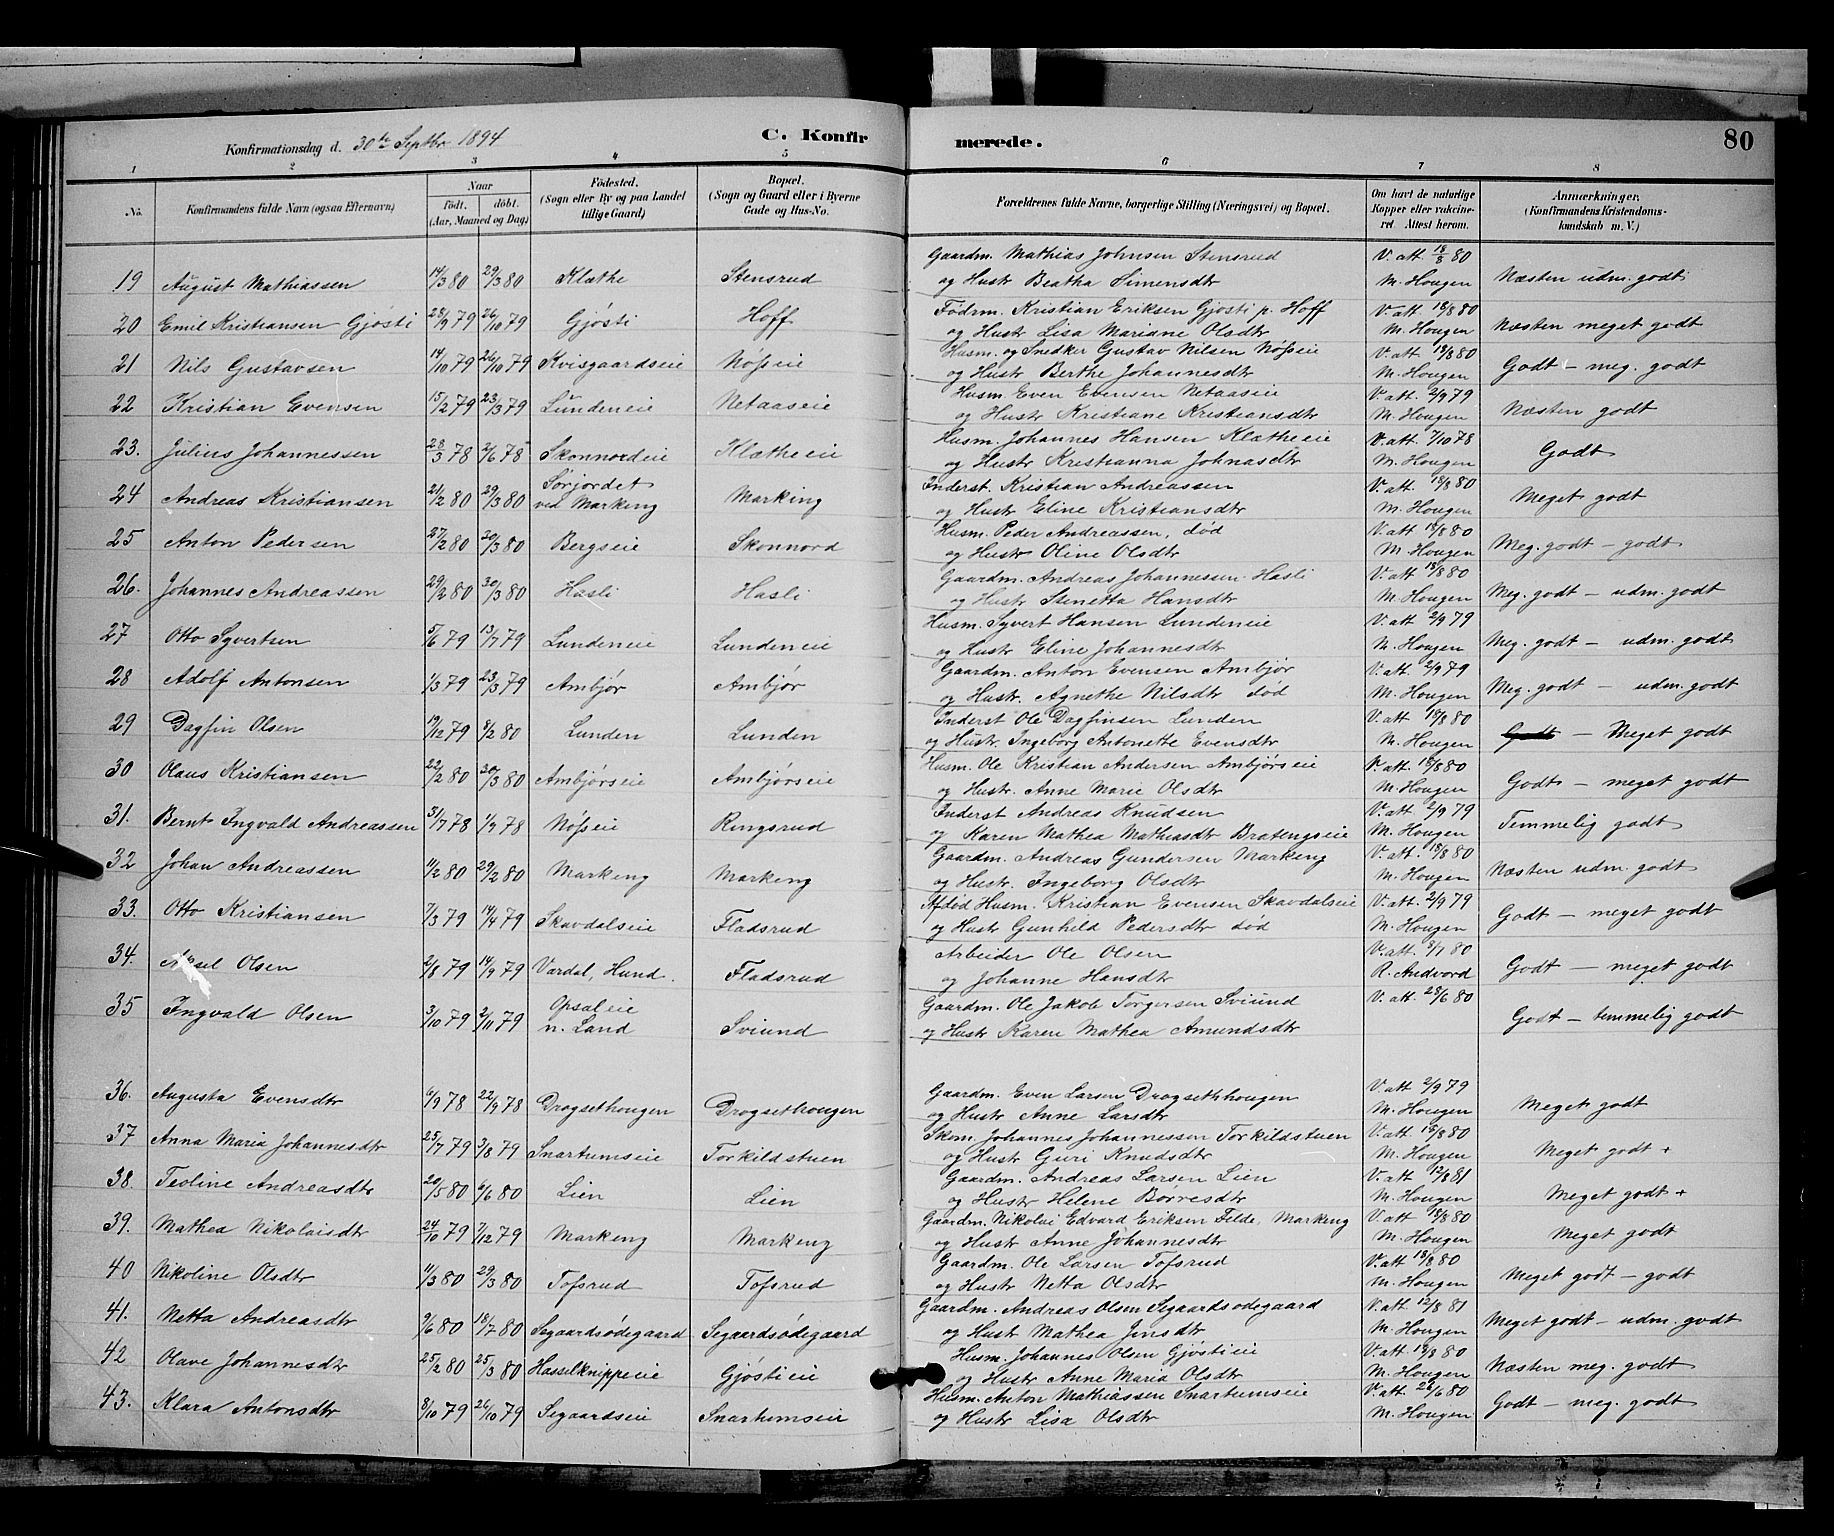 Konfirmationsdag d. 30te Septbr 1894 C. Konfirmerede. 80
1 2 3 4 5 6 7 8
No. Konfirmandens fulde Navn (ogsaa Efternavn) Naar født. døbt. (Aar, Maaned og Dag) Fødested. (Sogn eller By og paa Landet tillige Gaard) Bopæl. (Sogn og Gaard eller i Byerne Gade og Hus-No. Forældrenes fulde Navne, borgerlige Stilling (Næringsvei) og Bopæl. Om havt de naturlige Kopper eller vakcineret. Attest herom. Anmærkninger. (Konfirmandens Kristendomskundskab m. V.)
19 August Mathiassen 14/3 80 29/3 80 Klæthe Stensrud Gaardm. Mathias Johnsen Stensrud V. att 18/8 80
og Hustr Beatha Simensdtr M. Hougen Næsten udm. godt
20 Emil Kristiansen Gjøsti 28/9 79 26/10 79 Gjøsti Hoff Fødrm. Kristian Eriksen Gjøsti p. Hoff V. att 18/8 80
og Hustr Lisa Mariane Olsdtr M. Hougen Næsten meget godt
21 Nils Gustavsen 14/10 79 26/10 79 Kvisgaardseie Nøsseie Husm. og Snedker Gustav Nilsen Nøsseie V. att 18/8 80
og Hustr Berthe Johannesdtr M. Hougen Godt - meg. godt
22 Kristian Evensen 15/2 79 23/3 79 Lundeneie Netaaseie Husm Even Evensen Netaaseie V. att 2/9 79
og Hustr Kristiane Kristiansdtr M. Hougen Næsten godt
23. Julius Johannessen 28/3 78 2/6 78 Skonnordeie Klætheeie Husm. Johannes Hansen Klætheeie V. att. 7/10 78
og Hustr Kristianna Johnasdtr M. Hougen Godt
24 Andreas Kristiansen 21/2 80 29/3 80 Sørjordet ved Marking Marking Inderst. Kristian Andreassen V. att. 18/8 80
og Hustr Eline Kristiansdtr M. Hougen Meget godt
25 Anton Pedersen 27/2 80 20/3 80 Bergseie Skonnord Husm. Peder Andreassen, død V. att 18/8 80
og Hustr Oline Olsdtr M. Hougen Meg. godt - godt
26. Johannes Andreassen 29/2 80 30/3 80 Hasli Hasli Gaardm. Andreas Johannessen Hasli V. att 18/8 80
og Hustr Stenetta Hansdtr M. Hougen Meg. godt - udm. godt
27 Otto Syvertsen 5/6 79 13/7 79 Lundeneie Lundeneie Husm. Syvert Hansen Lundeneie V. att 2/9 79
og Hustr Eline Johannesdtr M. Hougen Meg. godt - udm. godt
28 Adolf Antonsen 1/3 79 23/3 79 Ambjør Ambjør Gaardm. Anton Evensen Ambjør V. att 2/9 79
og Hustr. Agnethe Nilsdtr død M. Hougen Meg. godt - udm. godt
29 Dagfin Olsen 19/12 79 8/2 80 Lunden Lunden Inderst Ole Dagfinsen Lunden V. att 18/8 80
og Hustr. Ingeborg Antonette Evensdtr M. Hougen Godt - Meget godt
30 Olaus Kristiansen 22/2 80 30/3 80 Ambjørseie Ambjørseie Husm. Ole Kristian Andersen Ambjørseie V. att. 18/8 80
og Hustr. Anne Marie Olsdtr M. Hougen Godt - meget godt
31. Bernt Ingvald Andreassen 31/7 78 1/9 78 Nøsseie Ringsrud Inderst Andreas Knudsen V. att 2/9 79
og Karen Mathea Mathiasdtr Bratengseie M. Hougen Temmelig godt
32 Johan Andreassen 11/2 80 29/2 80 Markeng Markeng Gaardm. Andreas Gundersen Markeng V. att. 18/8 80
og Hustr. Ingeborg Olsdtr M. Hougen Næsten udm. godt
33. Otto Kristiansen 7/3 79 14/4 79 Skavdalseie Fladsrud Afdød Husm. Kristian Evensen Skavdalseie V. att. 2/9 79
og Hustr Gunhild Pedersdtr død M. Hougen Godt - meget godt
34. Olsen 2/8 79 14/9 79 Vardal, Hund. Fladsrud Arbeider Ole Olsen V. att 8/7 80
og Johanne Hansdtr R. Andvord Godt - meget godt
35 Ingvald Olsen 3/10 79 2/11 79 Opsaleie n. Land Sviund Gaardm. Ole Jakob Torgersen Sviund V. att. 28/6 80
og Hustr Karen Mathea Amundsdtr Godt - temmelig godt
36. Augusta Evensdtr 6/9 78 22/9 78 Drogsethougen Drogsethougen Gaardm. Even Larsen Drogsethhougen V. att 2/9 79
og Hustr Anne Larsdtr M. Hougen Meget godt
37 Anna Maria Johannesdtr 25/7 79 3/8 79 Snartumseie Torkildstuen Skom. Johannes Johannessen Torkildstuen V. att. 18/8 80
og Hustr Guri Knudsdtr M. Hougen Meget godt +
38. Teoline Andreasdtr 20/5 80 6/6 80 Lien Lien Gaardm. Andreas Larsen Lien V. att 12/8 81
og Hustr Helene Børresdtr M. Hougen Meget godt +
39. Mathea Nikolaisdtr 24/10 79 7/12 79 Markeng Markeng Gaardm. Nikolai Edvard Eriksen Felde, Markeng V. att 18/8 80
og Hustr Anne Johannesdtr M. Hougen Meget godt
40 Nikoline Olsdtr 11/3 80 29/3 80 Tofsrud Tofsrud Gaardm. Ole Larsen Tofsrud V. att 18/8 80
og Hustr Netta Olsdtr M. Hougen Meget godt - godt
41. Netta Andreasdtr 9/6 80 18/7 80 Segaardsødegaard Segaardsødegaard Gaardm. Andreas Olsen Segaardsødegaard V. att 12/8 81
og Hustr Mathea Jensdtr M. Hougen Meget godt - udm. godt
42 Olave Johannesdtr 25/2 80 25/3 80 Hasselknippeeie Gjøstieie Husm. Johannes Olsen Gjøstieie V. att 18/8 80
og Hustr Anne Maria Olsdtr M. Hougen Næsten meg. godt
43. Klara Antonsdtr 8/10 79 26/10 79 Segaardseie Snartumseie Husm. Anton Mathiassen Snartumseie V. att 28/6 80
og Hustr Lisa Olsdtr M. Hougen Godt - meg. godt